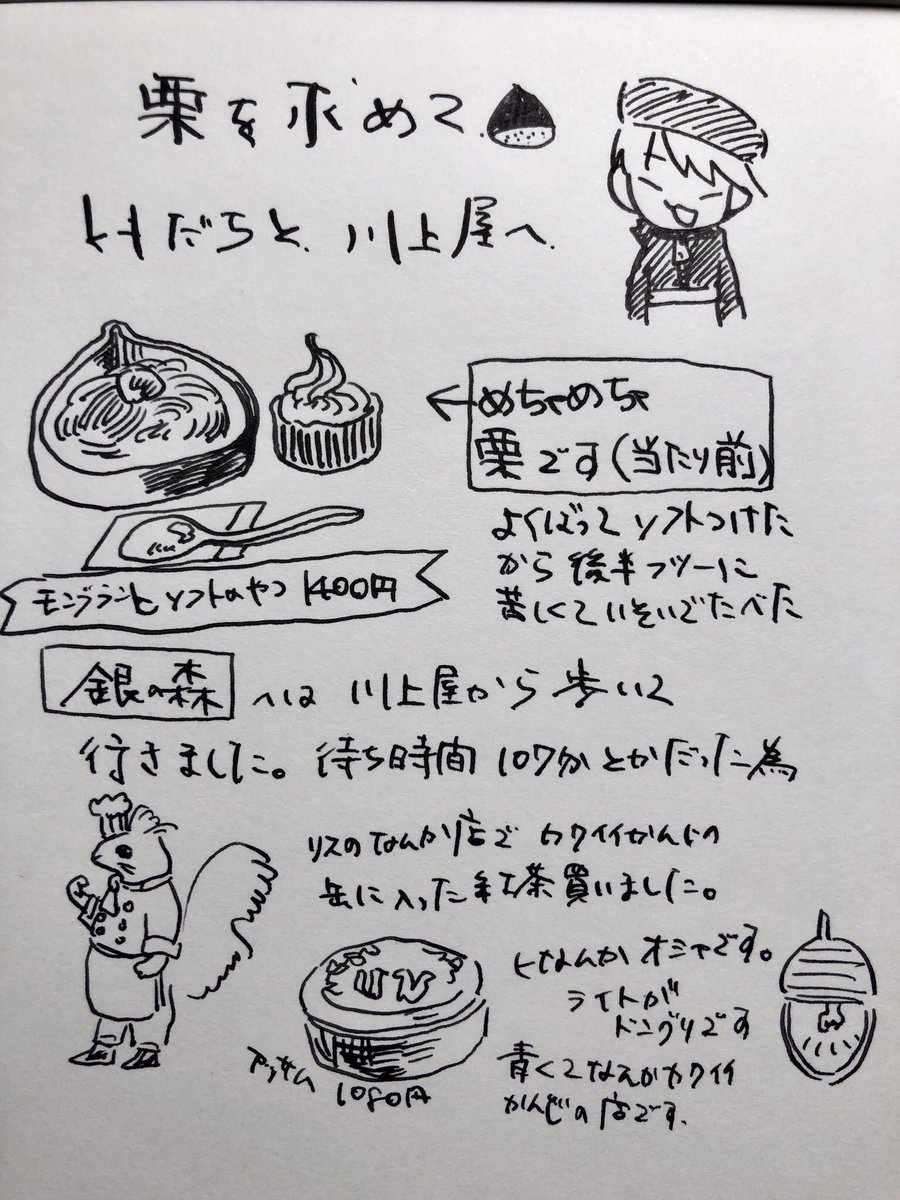 栗を求めて
ともだちと、川上屋へ
めちゃめちゃ
栗です(当たり前)
よくばってソフトつけた
から後半フツーに
苦しくていそいでたべた
モンブランとソフトのやつ 1400円
銀の森 へは 川上屋から歩いて
行きました。待ち時間107分とかだった為
リスのなんか店で カワイイかんじの
缶に入った紅茶買いました。
となんかオシャです。
ライトが
ドングリです
青くてなんかカワイイ
かんじの店です.
アッサム 1080円